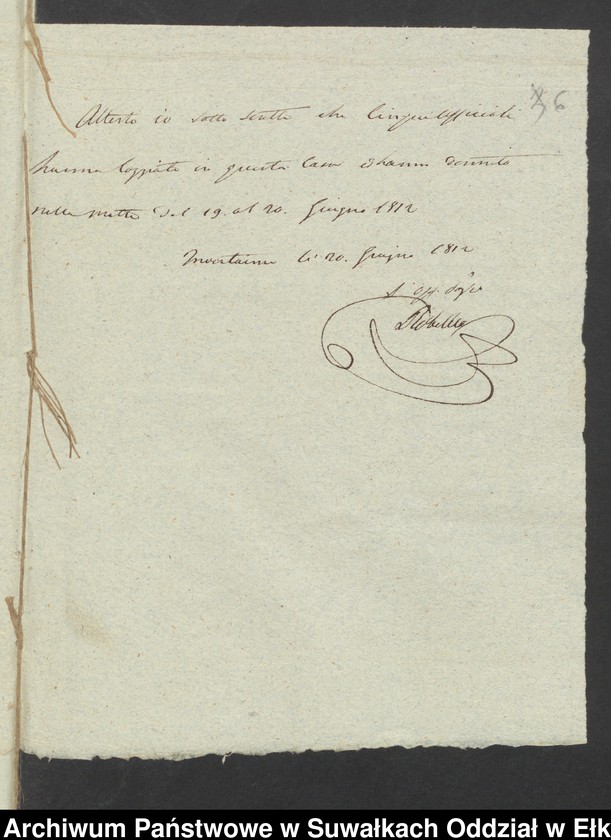 36
Attesto io sotto scritto che Cinque Officiali
hanno loggiato in questa Casa e hanno dormito
nella notte del 19. al 20. Giugno 1812
li 20. Giugno 1812
Archiwum Państwowe w Suwałkach Oddział w Ełk